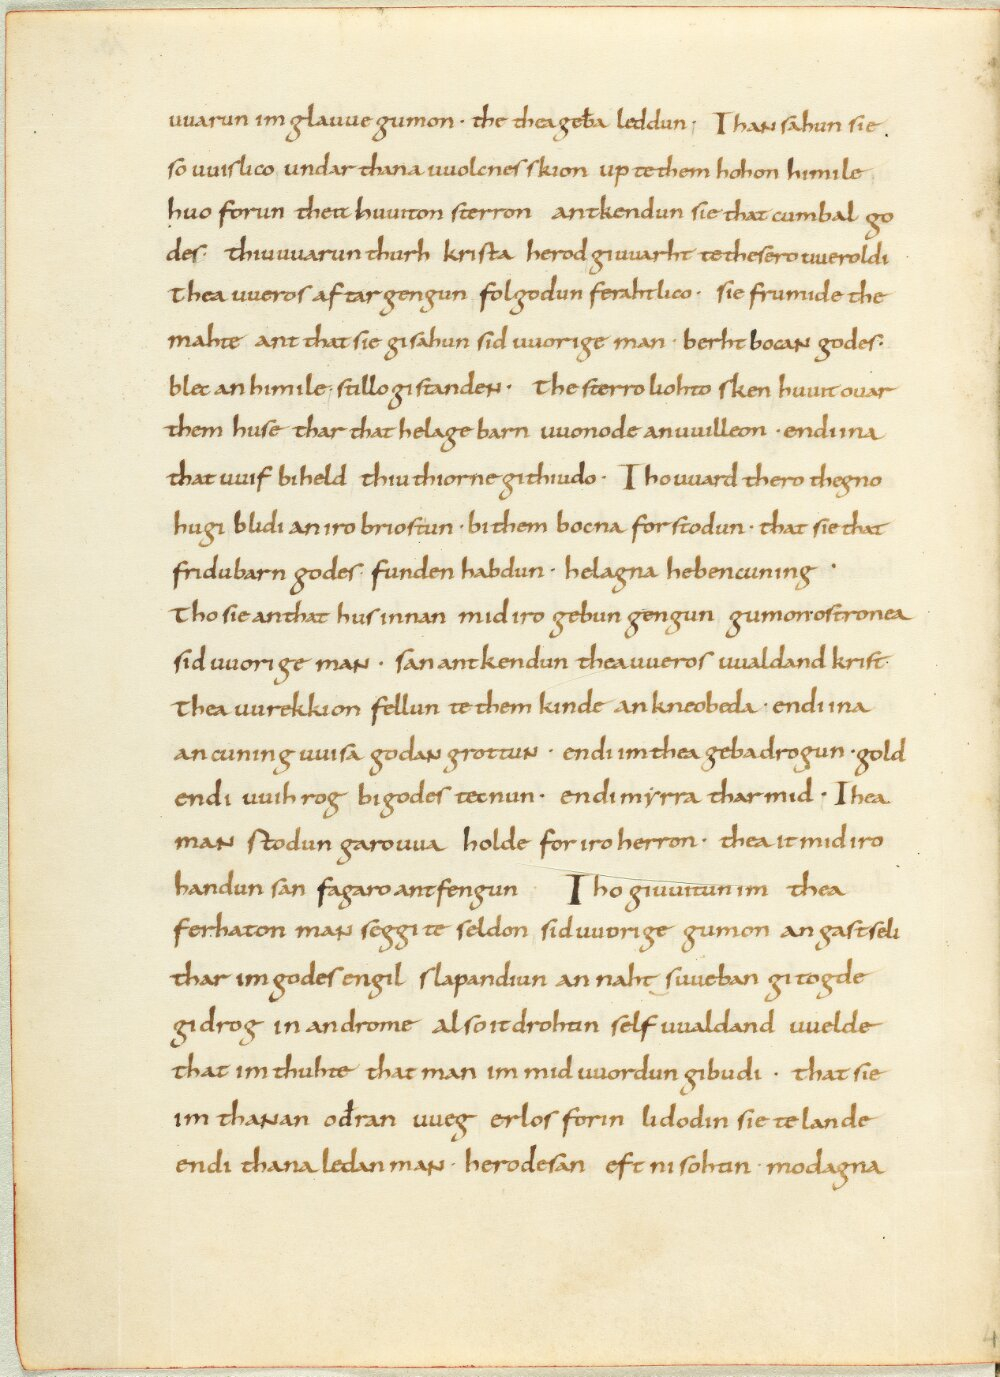 uuarun im glauue gumon · the thea geƀa leddun · Than sahun sie
so uuislico undar thana uuolcnes skion up te them hohon himile
huo forun thea huuiton sterron antkendun sie that cumbal go
des · thiu uuarun thurh krista herod giuuarht te thesero uueroldi
Thea uueros aftar gengun folgodun ferahtlico · sie frumide the
mahte ant that sie gisahun sid uuorige man · berht bocan godes ·
blec an himile · stillo gistanden · The sterro liohto sken huuit ouar
them huse thar that helage barn uuonode an uuilleon · endi ina
that uuif biheld thiu thiorne githiudo · Tho uuard thero thegno
hugi blidi an iro briostun · bi them bocna forstodun · that sie that
fridubarn godes funden habdun · helagna hebencuning ·
Tho sie an that hus innan mid iro gebun gengun gumon ostronea
sid uuorige man · san antkendun thea uueros uualdand krist ·
Thea uurekkion fellun te them kinde an kneobeda · endi ina
an cuning uuisa godan grottun · endi im thea geba drogun · gold
endi uuihrog bi godes tecnun · endi myrra thar mid · Thea
man stodun garouua holde for iro herron · thea it mid iro
handun san fagaro antfengun Tho giuuitun im thea
ferhaton man seggi te seldon sid uuorige gumon an gastseli
thar im godes engil slapandiun an naht sueban gitogde
gidrog in an drome al so it drohtin self uualdand uuelde
that im thuhte that man im mid uuordun gibudi · that sie
im thanan ođran uueg erlos forin lidodin sie te lande
endi thana ledan man · herodesan eft ni sohtin · modagna